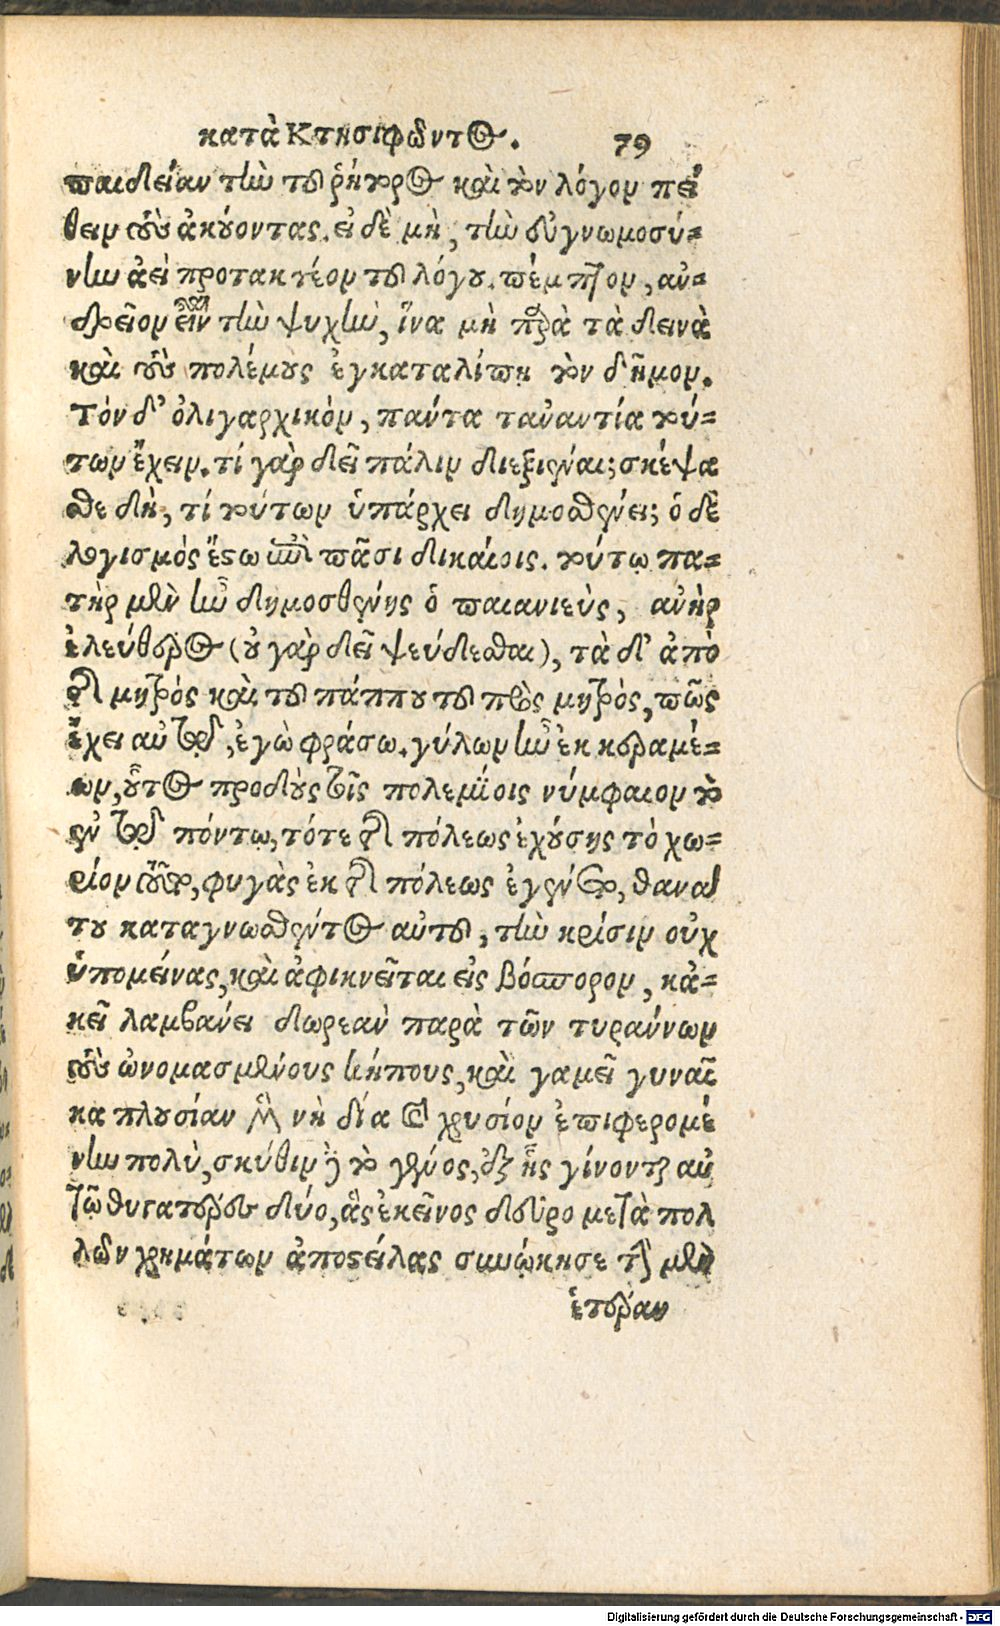 κατὰ Κτησιφῶντος. 79
παιδείαν τὴν τοῦ ῥήτορος καὶ τὸν λόγον πεί
θειν τοὺς ἀκούοντας. εἰ δὲ μὴ, τὴν εὐγνωμοσύ-
νην ἀεὶ προτακτέον τοῦ λόγου. πέμπτον, ἀν-
δρεῖον εἶναι τὴν ψυχὴν, ἵνα μὴ παρὰ τὰ δεινὰ
καὶ τοὺς πολέμους ἐγκαταλίπῃ τὸν δῆμον.
Τὸν δ' ὀλιγαρχικὸν, πάντα τἀναντία τού-
των ἔχειν. τί γὰρ δεῖ πάλιν διεξιέναι; σκέψα
σθε δὴ, τί τούτων ὑπάρχει δημοσθένει; ὁ δὲ
λογισμὸς ἔστω ἐπὶ πᾶσι δικαίοις. τούτῳ πα-
τὴρ μὲν ἦν δημοσθένης ὁ παιανιεὺς, ἀνὴρ
ἐλεύθερος (οὐ γὰρ δεῖ ψεύδεσθαι), τὰ δ' ἀπὸ
τῆς μητρὸς καὶ τοῦ πάππου τοῦ πρὸς μητρὸς, πῶς
ἔχει αὐτῷ, ἐγὼ φράσω. γύλων ἦν ἐκ κεραμέ-
ων, οὗτος προδοὺς τοῖς πολεμίοις νύμφαιον τὸ
ἐν τῷ πόντῳ, τότε τῆς πόλεως ἐχούσης τὸ χω-
ρίον τοῦτο, φυγὰς ἐκ τῆς πόλεως ἐγένετο, θανά
του καταγνωσθέντος αὐτοῦ, τὴν κρίσιν οὐχ
ὑπομείνας, καὶ ἀφικνεῖται εἰς βόσπορον, κἀ-
κεῖ λαμβάνει δωρεὰν παρὰ τῶν τυράννων
τοὺς ὠνομασμένους κήπους, καὶ γαμεῖ γυναῖ
κα πλουσίαν μὲν νὴ δία καὶ χρυσίον ἐπιφερομέ
νην πολὺ, σκύθιν δὲ τὸ γένος, ἐξ ἧς γίνονται αὐ
τῷ θυγατέρες δύο, ἃς ἐκεῖνος δεῦρο μετὰ πολ
λῶν χρημάτων ἀποστείλας συνῴκησε τὴν μὲν
ἑτέραν
Digitalisierung gefördert durch die Deutsche Forschungsgemeinschaft - DFG